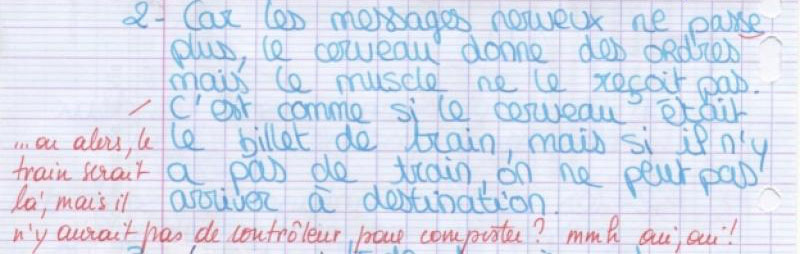 2- Car les messages nerveux ne passe
plus, le cerveau donne des ordres
mais le muscle ne le reçoit pas.
C'est comme si le cerveau était
le billet de train, mais si il n'y
a pas de train, on ne peut pas
arriver à destination.
...ou alors, le
train serait
là, mais il
n'y aurait pas de contrôleur pour composter? mmh oui, oui!